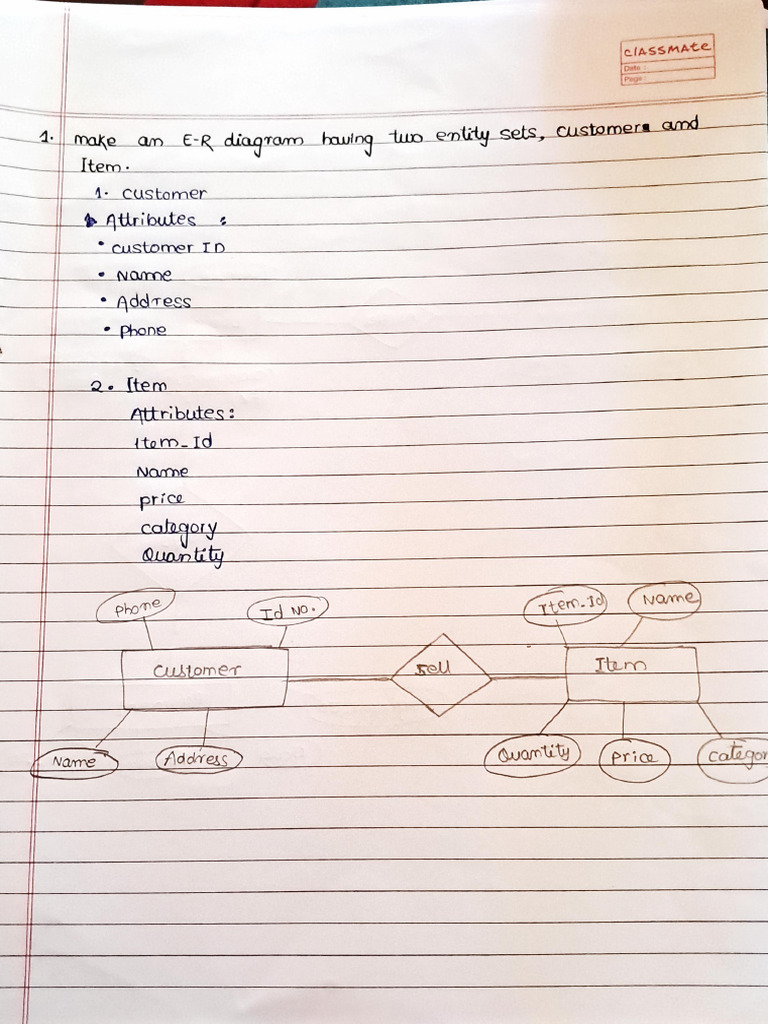 CLASSMATE
Date :
Page :
1. make an E-R diagram having two entity sets, customer and
Item.
1. customer
Attributes :
• customer ID
• Name
• Address
• phone
2. Item
Attributes:
Item_Id
Name
price
category
Quantity
phone
Id No.
Item_Id
Name
customer
sell
Item
Name
Address
Quantity
price
categor